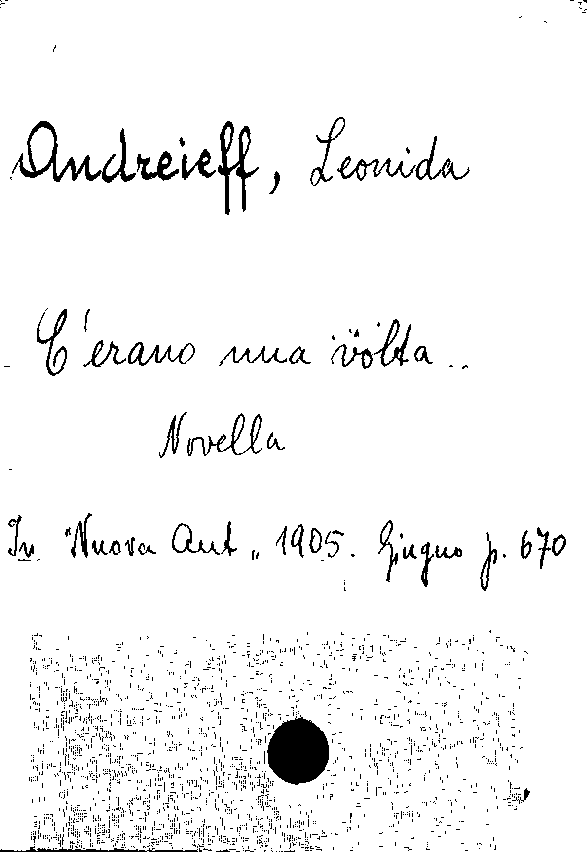 Andreieff, Leonida
C'erano una volta ..
Novella
In "Nuova Ant„ 1905. Giugno p. 670